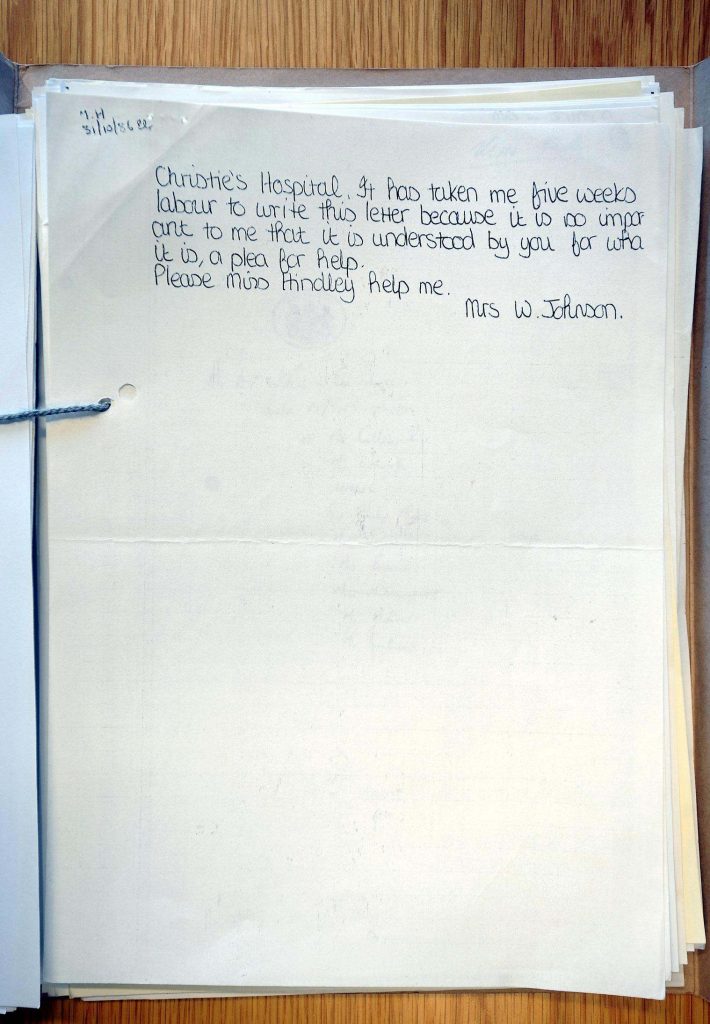 31/10/86
Christie's Hospital. It has taken me five weeks
labour to write this letter because it is so impor
ant to me that it is understood by you for wha
it is, a plea for help.
Please Miss Hindley help me.
Mrs W. Johnson.